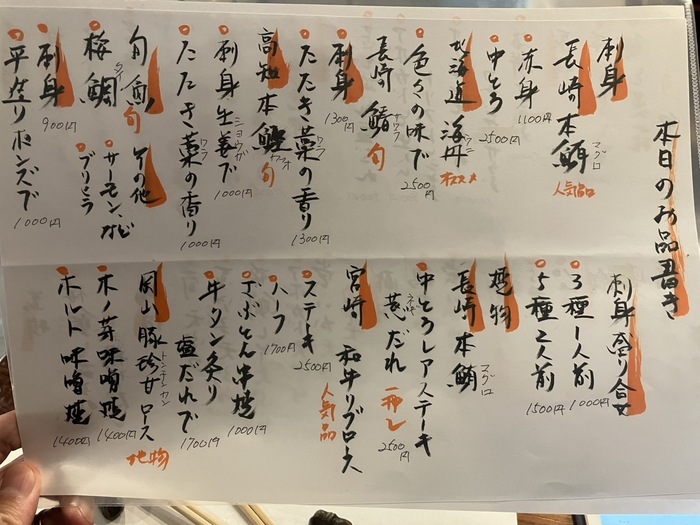 本日のお品書き
刺身
長崎 本鮪 マグロ 人気品
赤身 1100円
中とろ 2500円
北海道 海丹 ウニ オススメ
色々の味で 2500円
長崎 鰆 サワラ 旬
刺身 1300円
たたき藁の香り ワラ 1300円
高知 本鰹 カツオ 旬
刺身生姜で ショウガ 1000円
たたき藁の香り ワラ 1000円
旬魚 旬 その他
桜鯛 タイ サーモン、など ブリヒラ
刺身 900円
平造りポンズで 1000円
刺身盛り合せ
3種1人前 1000円
5種2人前 1500円
焼物
長崎 本鮪 マグロ
中とろレアステーキ
葱だれ ネギ 一押し 2500円
宮崎 和牛リブロース 人気品
ステーキ 2500円
ハーフ 1700円
ざぶとん串焼 1000円
牛タン炙り 塩だれで 1700円
岡山 豚珍甘ロース トンチンカン 地物
木ノ芽味噌焼 1400円
ホルト味噌焼 1400円